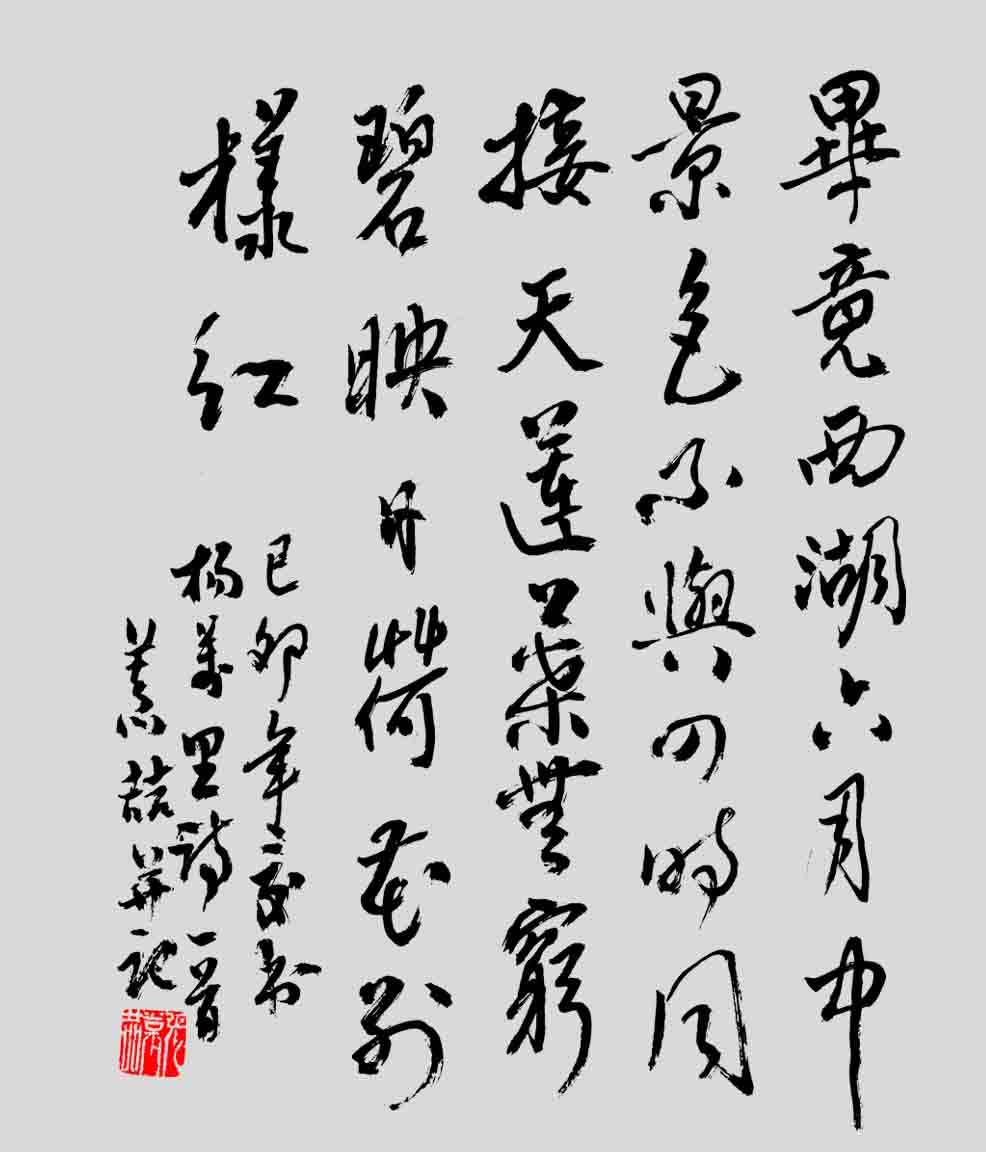 畢竟西湖六月中
景色不與四時同
接天蓮葉無窮
碧映日荷花别
樣紅
己卯年夏書
楊萬里詩一首
喆并記